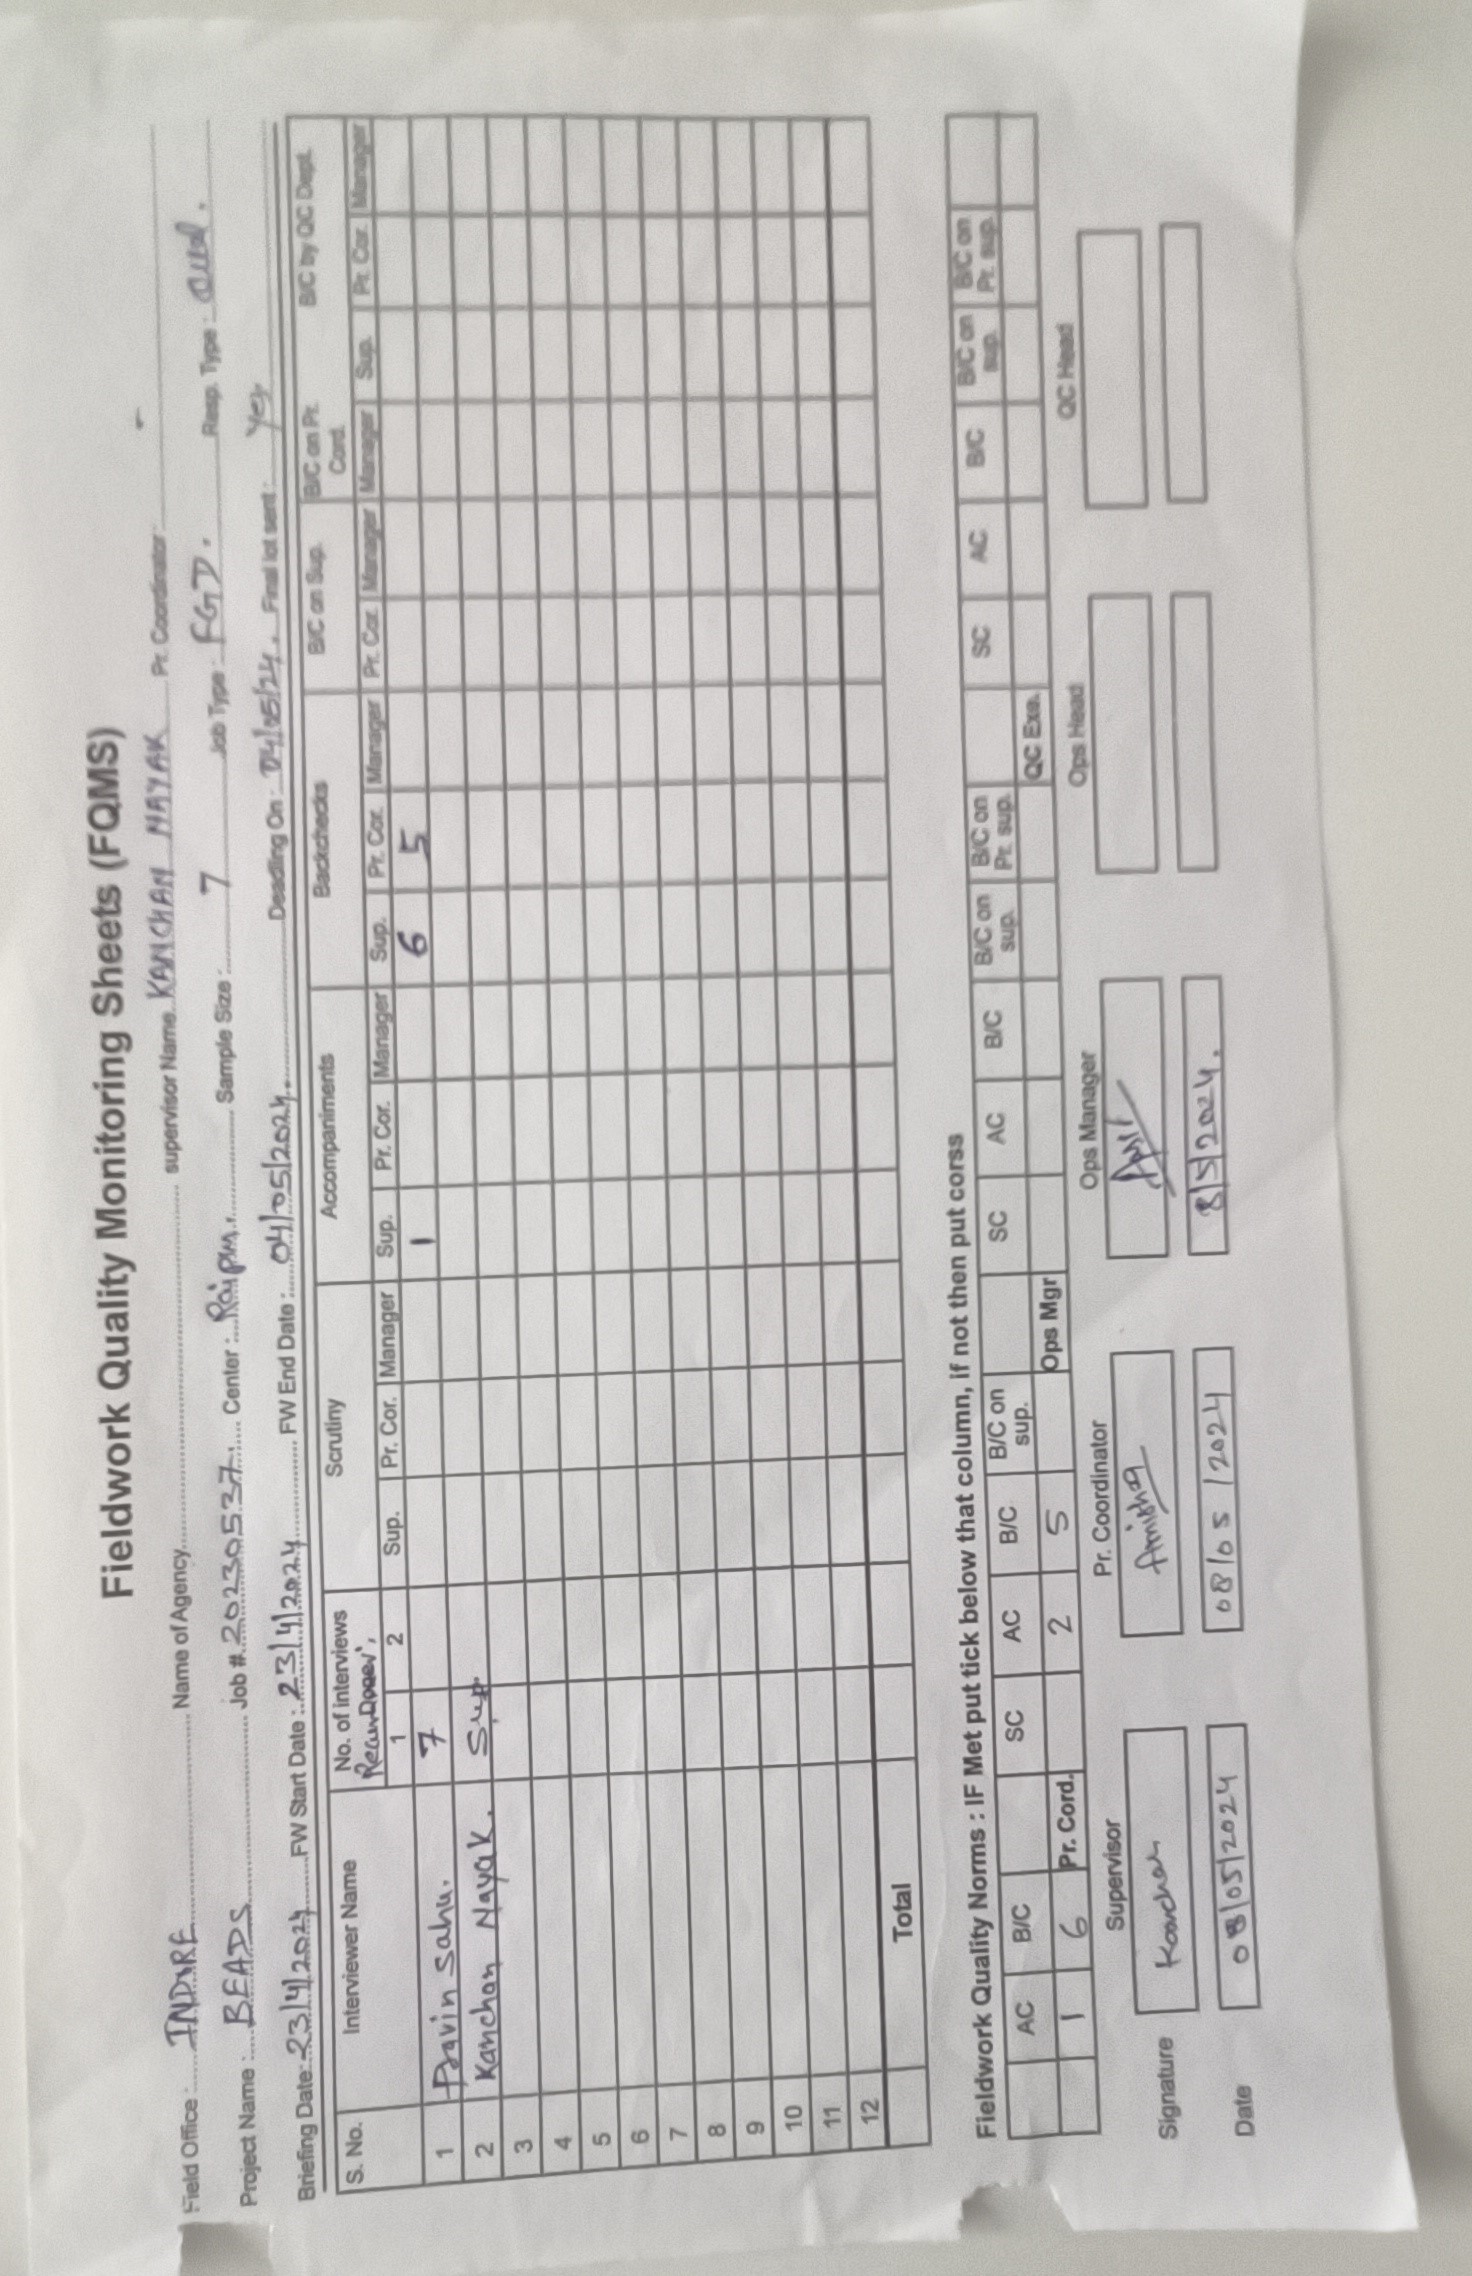 Fieldwork Quality Monitoring Sheets (FQMS)
Field Office : INDORE Name of Agency supervisor Name KANCHAN NAYAK Pr. Coordinator: -
Project Name : BEADS Job # 20230537 Center : Raipur Sample Size : 7 Job Type : FGD. Resp. Type : Qual.
Briefing Date: 23/4/2024 FW Start Date : 23/4/2024 FW End Date : 04/05/2024. Deadling On : 04/05/24. Final lot sent : Yes
S. No. Interviewer Name No. of interviews Scrutiny Accompaniments Backchecks B/C on Sup. B/C on Pr. Cord. B/C by QC Dept.
1 2 Sup. Pr. Cor. Manager Sup. Pr. Cor. Manager Sup. Pr. Cor. Manager Pr. Cor. Manager Manager Sup. Pr. Cor. Manager
1 Pravin Sahu. 7 1 6 5
2 Kanchan Nayak. Sup.
3
4
5
6
7
8
9
10
11
12
Total
Fieldwork Quality Norms : IF Met put tick below that column, if not then put corss
AC B/C SC AC B/C B/C on sup. SC AC B/C B/C on sup. B/C on Pr. sup. SC AC B/C B/C on sup. B/C on Pr. sup.
1 6 Pr. Cord. 2 5 Ops Mgr QC Exe.
Supervisor Pr. Coordinator Ops Manager Ops Head QC Head
Signature Kanchan Amitha
Date 08/05/2024 08/05/2024 8/5/2024.